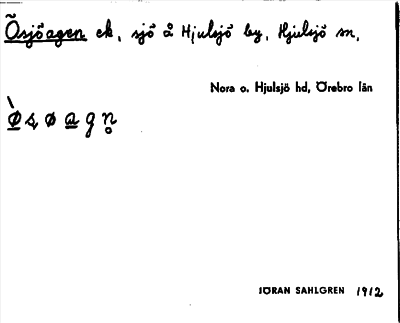 Ösjöagen ek, sjö å Hjulsjö by, Hjulsjö sn,
Nora o. Hjulsjö hd, Örebro län
JÖRAN SAHLGREN 1912